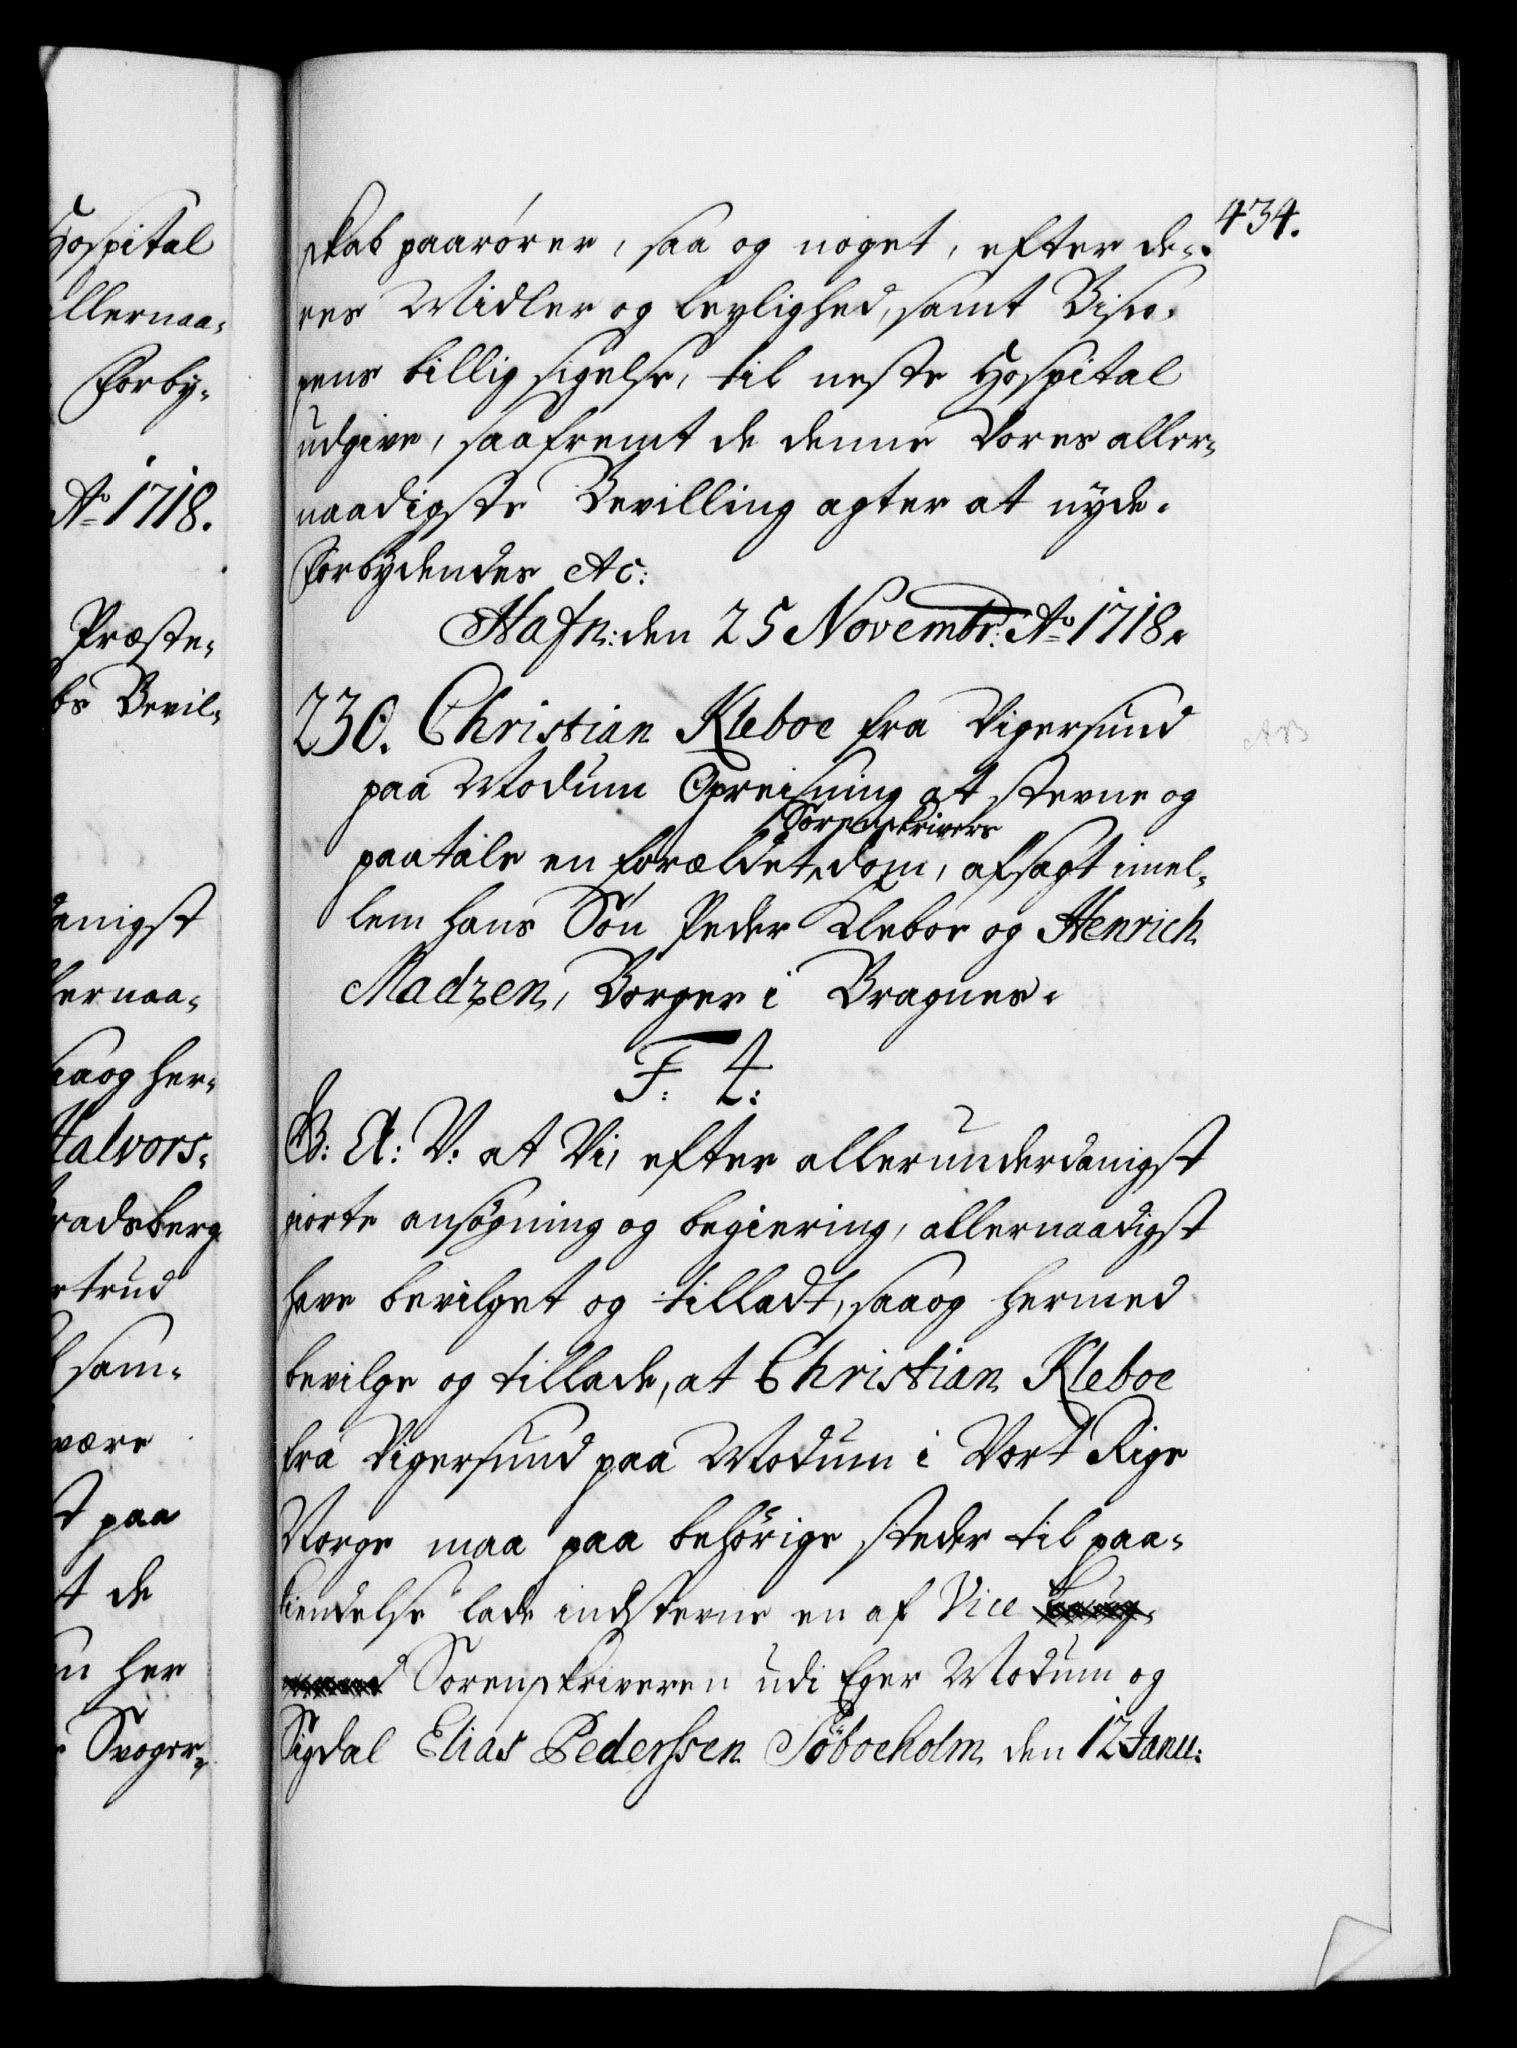 Hospital
llernaa-
Forby-
Ao 1718.
Præste-
bs Bevil-
danigst
lernaa-
saaog her-
Halvors-
radsberg
rtrud
sam-
være
t paa
t de
her
Svoger-
434.
skab paarører, saa og noget, efter de-
res Midler og leylighed, samt Bisco-
pens billig sigelse, til neste Hospital
udgive, saafremt de denne Vores aller-
naadigste Bevilling agter at nyde.
Forbydendes &c:
Hafn: den 25 Novembr: Ao 1718.
230. Christian Kleboe fra Vigersund
paa Modum Opreisning at stevne og
Sorenskrivers
paatale en forældet dom, afsagt imel-
lem hans Søn Peder Kleboe og Henrich
Madzen, Borger i Bragnes.
F: 4:
G: A: V: at Vi, efter allerunderdanigst
giorte ansøgning og begiering, allernaadigst
have bevilget og tilladt, saaog hermed
bevilge og tillade, at Christian Kleboe
fra Vigersund paa Modum i Vort Rige
Norge maa paa behörige steder til paa-
kiendelse lade indstevne en af Vice
Sorenskriveren udi Eger Modum og
Sigdal Elias Pederssen Söboeholm den 12 Janu: